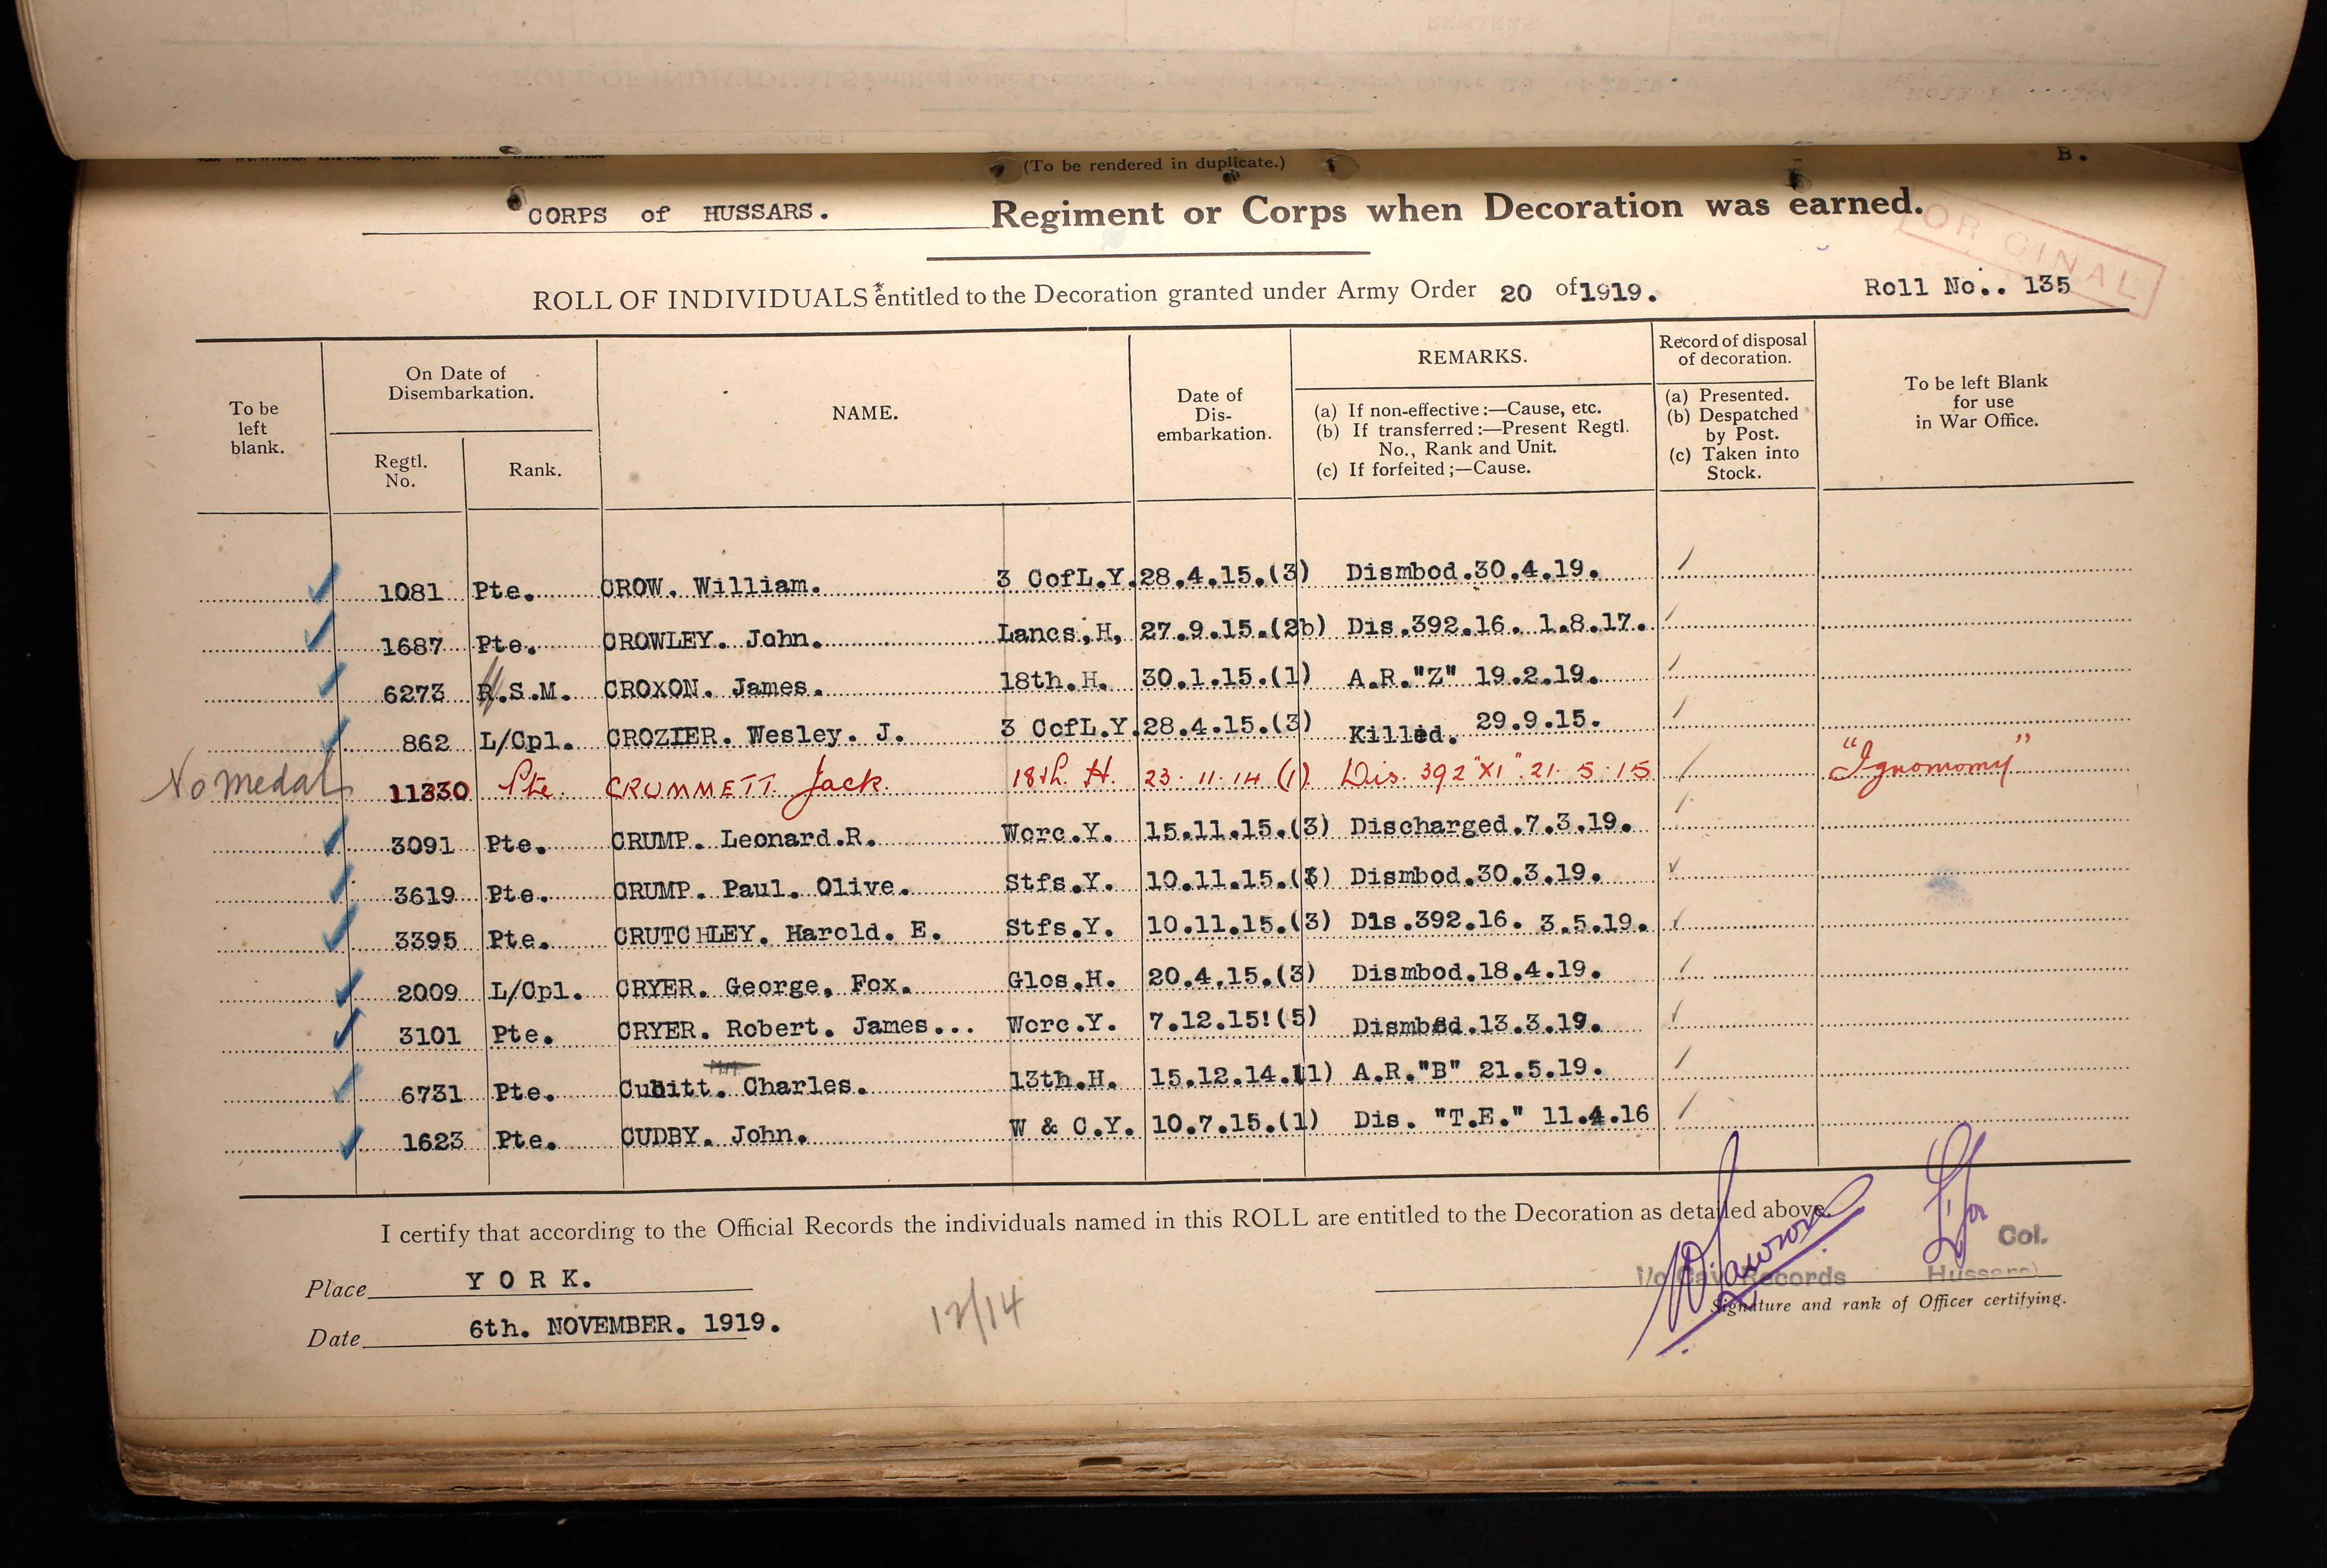 (To be rendered in duplicate.)
B.
CORPS of HUSSARS. Regiment or Corps when Decoration was earned.
ORIGINAL
ROLL OF INDIVIDUALS * entitled to the Decoration granted under Army Order 20 of 1919. Roll No.. 135
To be left blank.
On Date of Disembarkation.
Regtl. No.
Rank.
NAME.
Date of Dis-embarkation.
REMARKS.
(a) If non-effective:—Cause, etc.
(b) If transferred:—Present Regtl. No., Rank and Unit.
(c) If forfeited;—Cause.
Record of disposal of decoration.
(a) Presented.
(b) Despatched by Post.
(c) Taken into Stock.
To be left Blank for use in War Office.
1081 Pte. CROW. William. 3 CofL.Y. 28.4.15.(3) Dismbod.30.4.19.
1687 Pte. CROWLEY. John. Lancs,H, 27.9.15.(2b) Dis.392.16. 1.8.17.
6273 R.S.M. CROXON. James. 18th.H. 30.1.15.(1) A.R."Z" 19.2.19.
862 L/Cpl. CROZIER. Wesley. J. 3 CofL.Y. 28.4.15.(3) Killed. 29.9.15.
No medal 11330 Pte. CRUMMETT. Jack. 18th. H. 23.11.14 (1). Dis. 392 "XI". 21.5.15 "Ignomomy"
3091 Pte. CRUMP. Leonard.R. Worc.Y. 15.11.15.(3) Discharged.7.3.19.
3619 Pte. CRUMP. Paul. Olive. Stfs.Y. 10.11.15.(3) Dismbod.30.3.19.
3395 Pte. CRUTCHLEY. Harold. E. Stfs.Y. 10.11.15.(3) Dis.392.16. 3.5.19.
2009 L/Cpl. CRYER. George. Fox. Glos.H. 20.4.15.(3) Dismbod.18.4.19.
3101 Pte. CRYER. Robert. James... Worc.Y. 7.12.15!(5) Dismbod.13.3.19.
6731 Pte. Cubitt. Charles. 13th.H. 15.12.14.(1) A.R."B" 21.5.19.
1623 Pte. CUDBY. John. W & C.Y. 10.7.15.(1) Dis. "T.E." 11.4.16
I certify that according to the Official Records the individuals named in this ROLL are entitled to the Decoration as detailed above.
Col.
Place YORK.
I/c Cav. Records Hussars)
Signature and rank of Officer certifying.
Date 6th. NOVEMBER. 1919.
12/14